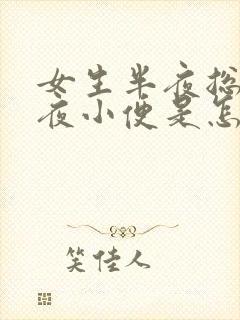 女生半夜总
夜小便是怎
笑佳人